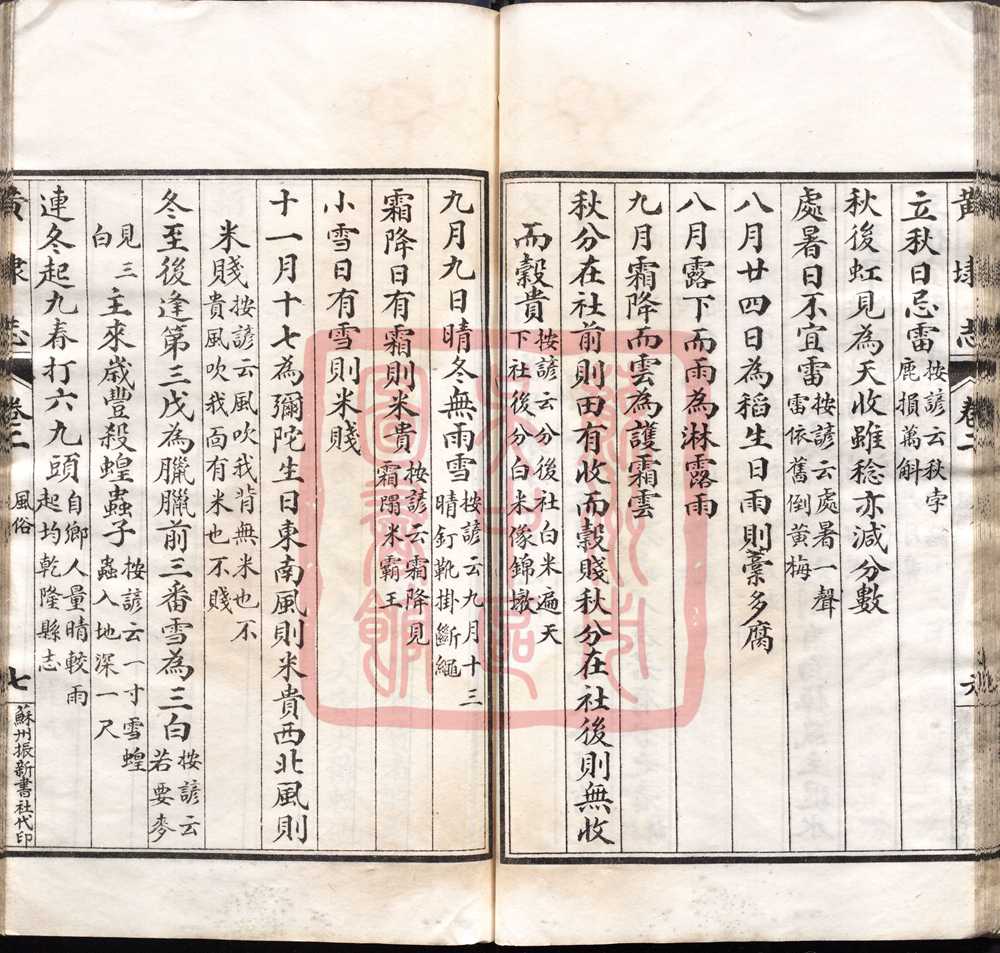 黃埭志
卷二
六
立秋日忌雷按諺云秋孛鹿損萬斛
秋後虹見為天收雖稔亦減分數
處暑日不宜雷按諺云處暑一聲雷依舊倒黃梅
八月廿四日為稻生日雨則藁多腐
八月露下而雨為淋露雨
九月霜降而雲為護霜雲
秋分在社前則田有收而穀賤秋分在社後則無收
而穀貴按諺云分後社白米遍天下社後分白米像錦墩
九月九日晴冬無雨雪按諺云九月十三晴釘靴掛斷繩
霜降日有霜則米貴按諺云霜降見霜閉米霸王
小雪日有雪則米賤
十一月十七為彌陀生日東南風則米貴西北風則
米賤按諺云風吹我背無米也不貴風吹我面有米也不賤
冬至後逢第三戊為臘臘前三番雪為三白按諺云若要麥
見三白主來歲豐殺蝗蟲子按諺云一寸雪蝗蟲入地深一尺
連冬起九春打六九頭自鄉人量晴較雨起均乾隆縣志
黃埭志
卷二
風俗
七
蘇州振新書社代印
蘇州大學圖書館